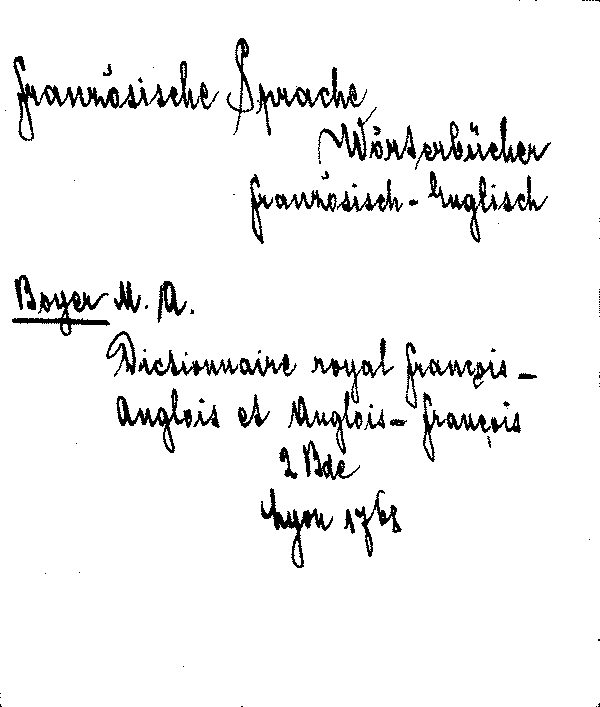 Französische Sprache
Wörterbücher
Französisch-Englisch
Boyer M. A.
Dictionnaire royal françois-
Anglois et Anglois-françois
2 Bde
Lyon 1768